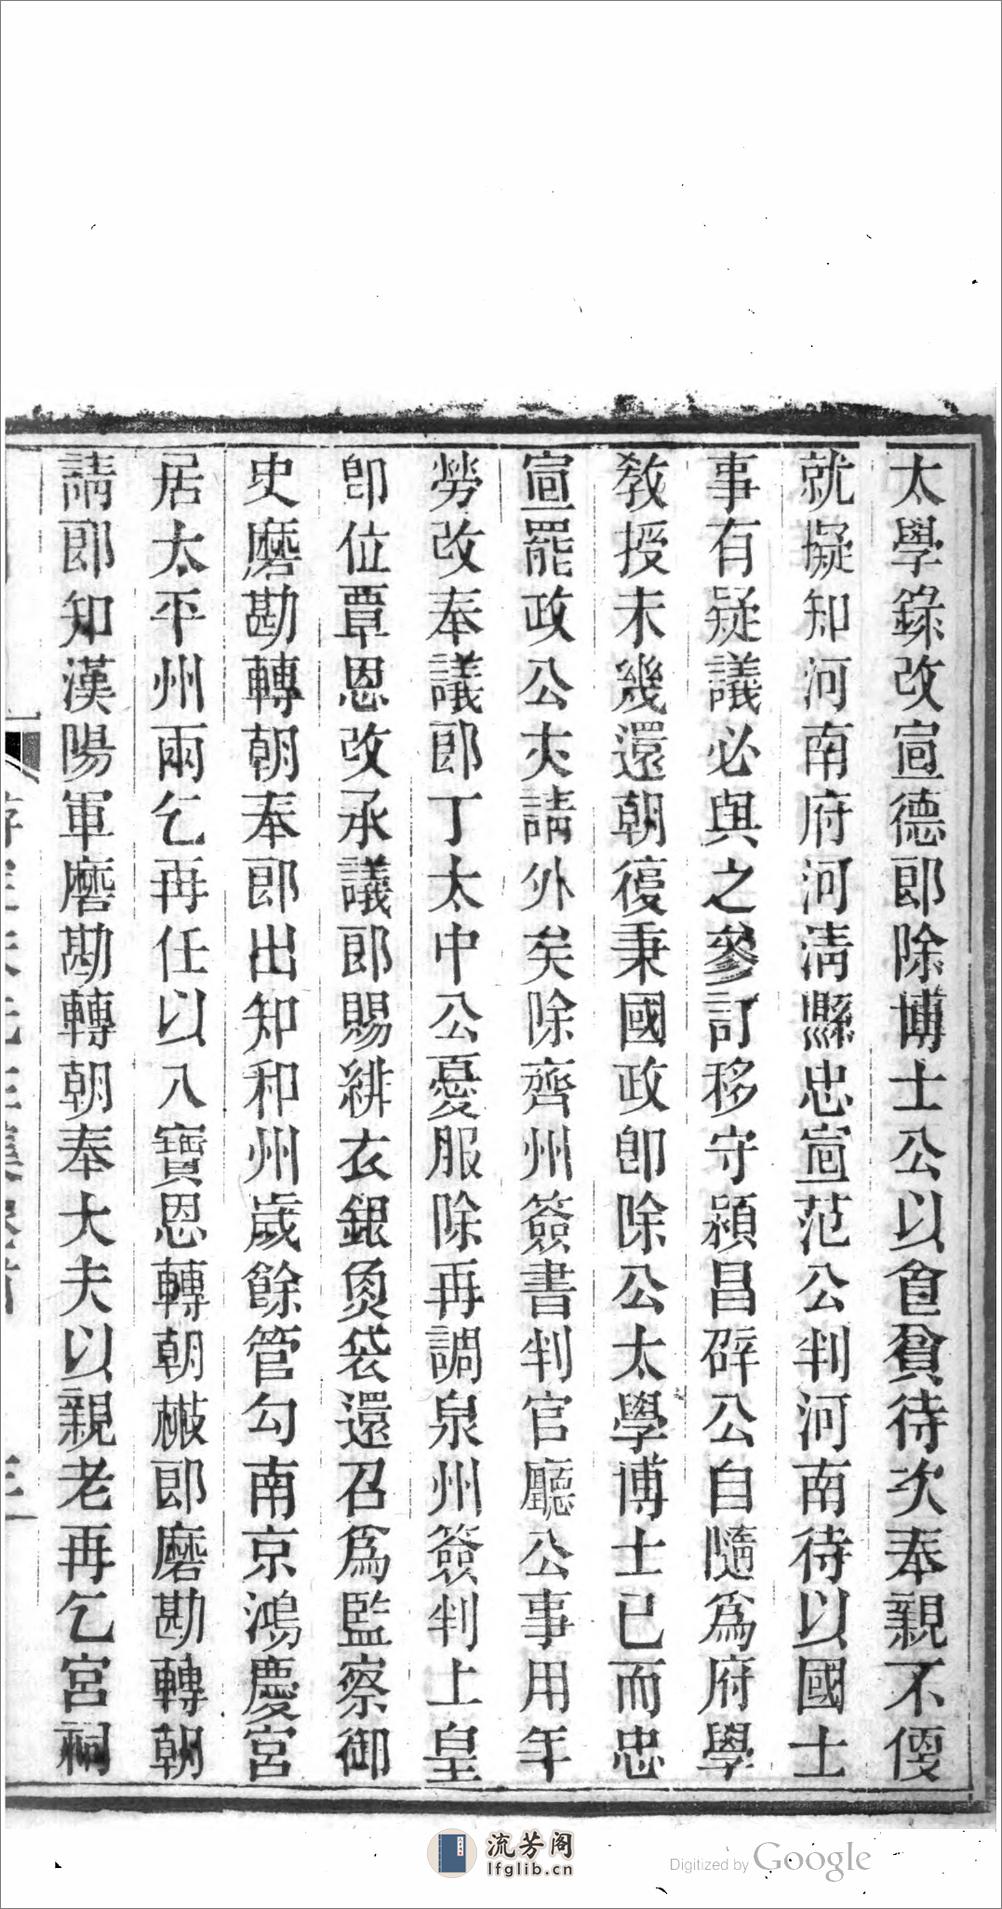 太學錄改宣德郎除博士公以食貧待次奉親不便
就擬知河南府河清縣忠宣范公判河南待以國士
事有疑議必與之參訂移守潁昌辟公自隨爲府學
教授未幾還朝復秉國政卽除公太學博士已而忠
宣罷政公夾請外矣除齊州簽書判官廳公事用年
勞改奉議郎丁太中公憂服除再調泉州簽判上皇
卽位覃恩改承議郎賜緋衣銀魚袋還召爲監察御
史磨勘轉朝奉郎出知和州歲餘管勾南京鴻慶宮
居太平州兩乞再任以八寶恩轉朝散郎磨勘轉朝
請郎知漢陽軍磨勘轉朝奉大夫以親老再乞宮祠
流芳阁
lfglib.cn
Digitized by Google